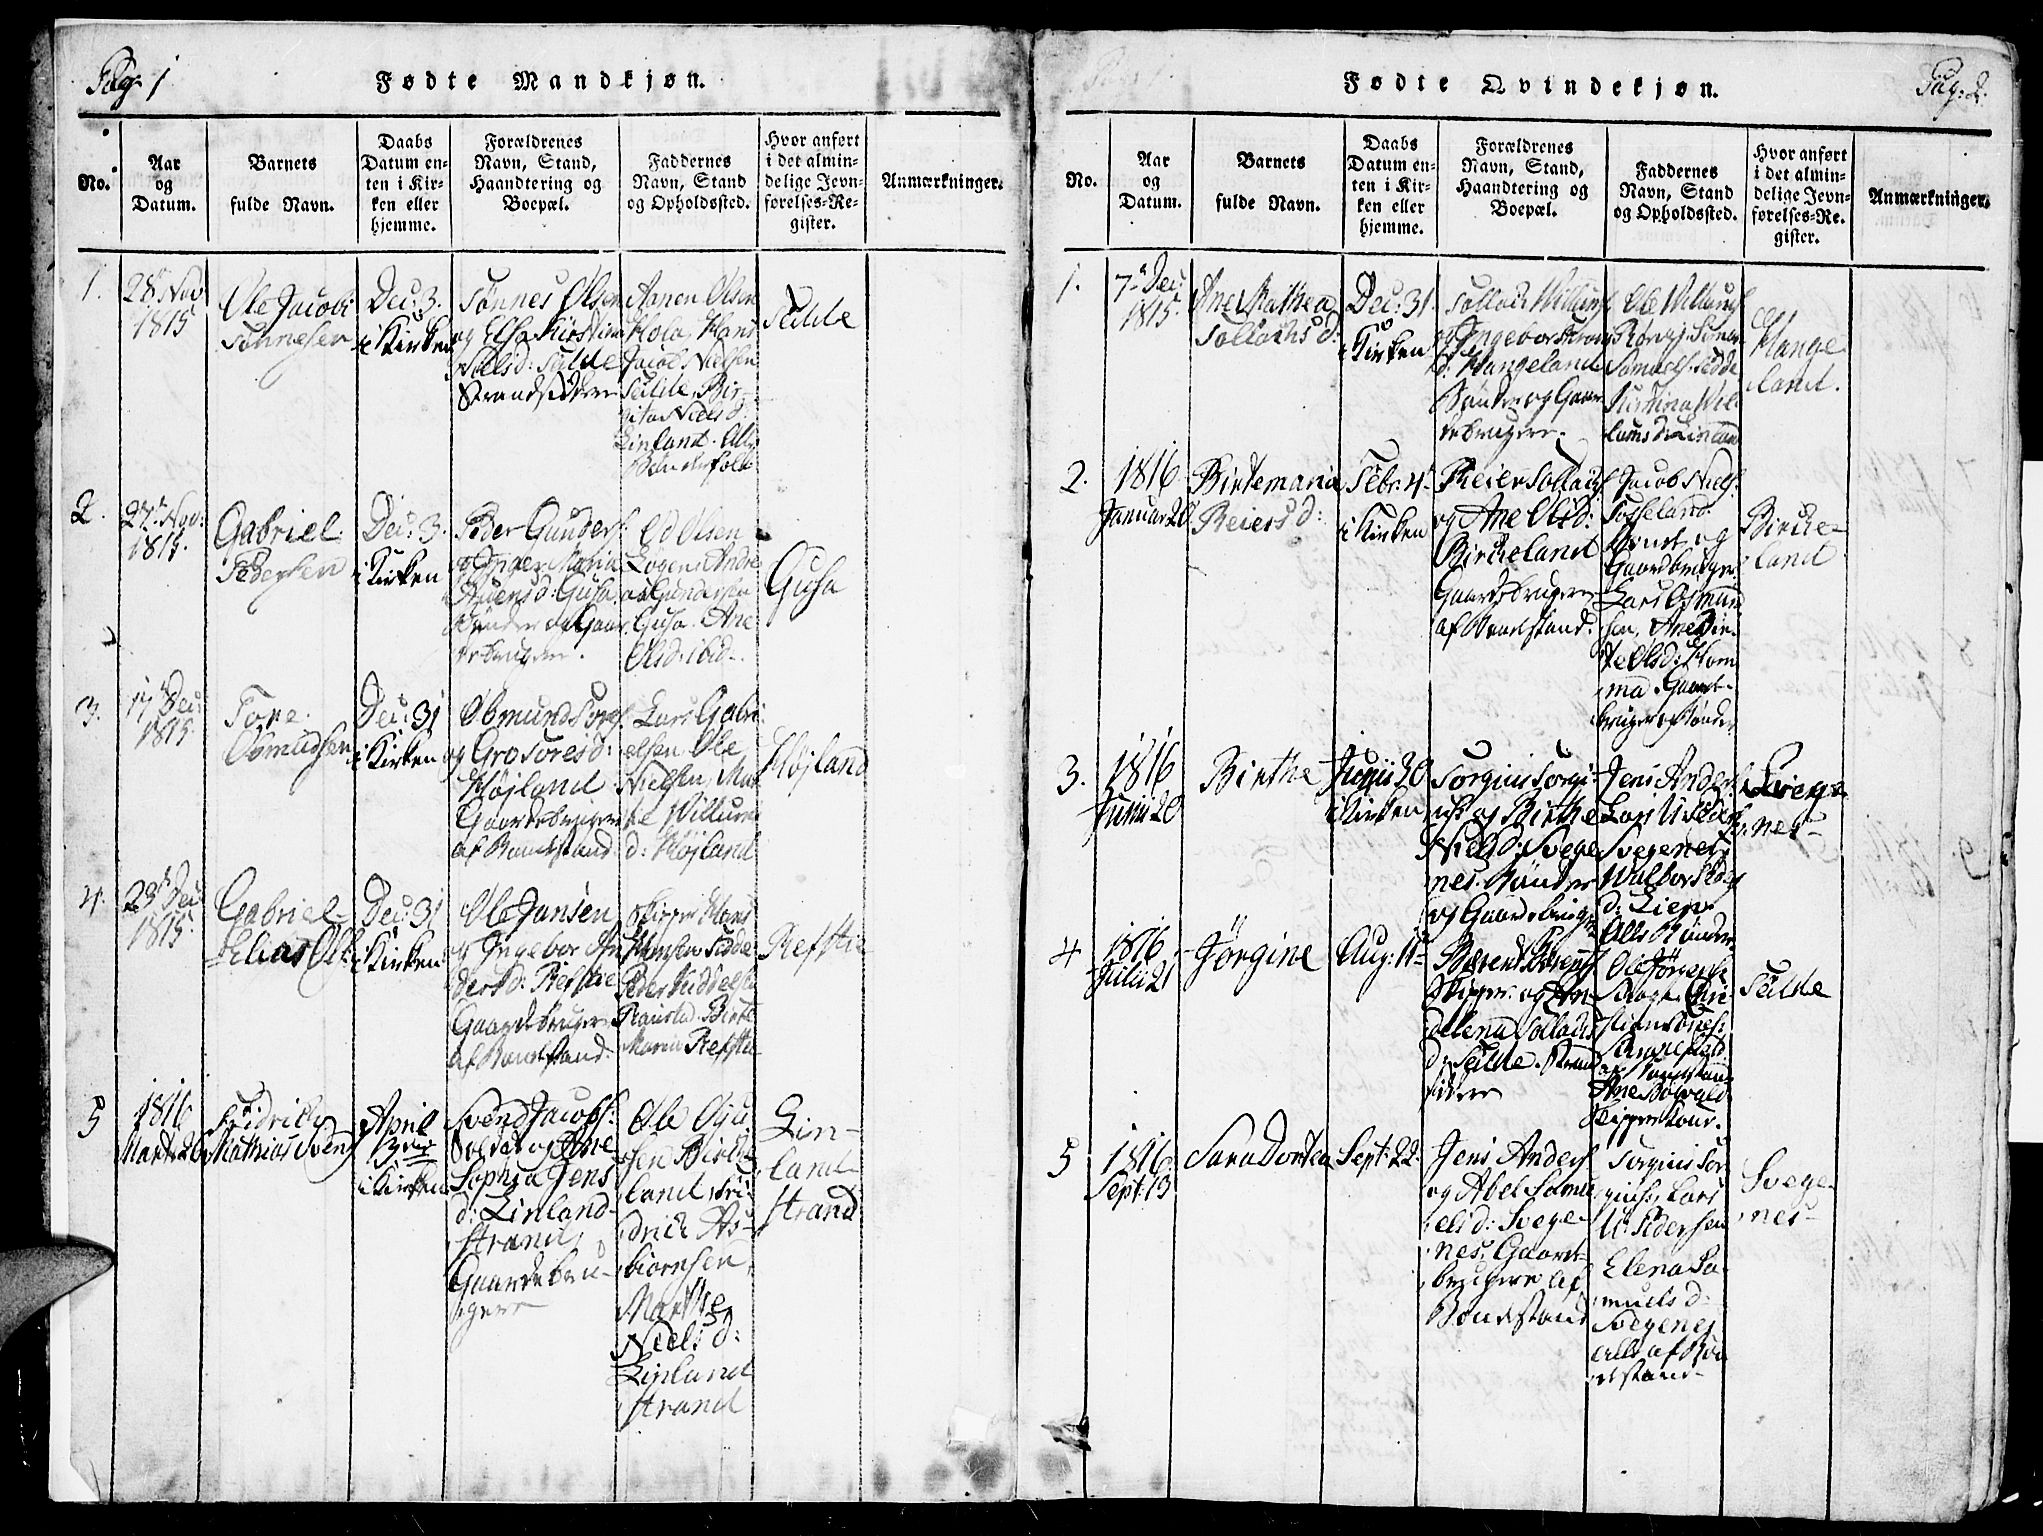 Pag: 1
Fødte Mandkjøn.
No.
Aar
og
Datum.
Barnets
fulde Navn.
Daabs
Datum en-
ten i Kir-
ken eller
hjemme.
Forældrenes
Navn, Stand,
Haandtering og
Boepæl.
Faddernes
Navn, Stand
og Opholdssted.
Hvor anført
i det almin-
delige Jevn-
førelses-Re-
gister.
Anmærkninger.
1.
28 Nov
1815
Ole Jacob
Sønnesen
Dec: 3.
i Kirken
Sønnes Olsen
og Elsa Kirstine
Niels d: Selde
Strandsiddere
Aanen Olsen
Jacob Nielsen
Selde, Bir-
gita Niels d:
Linland. Alle
Bønderfolk
Selde
2.
27 Nov:
1815.
Gabriel
Pedersen
Dec: 3.
i Kirken
Peder Gunders:
og Inger Maria
d: Gusa
Bønder og Gaar-
debrugere.
Od Olsen
Gundersen
Gusa. Ane
Ols d: ibid.
Gusa
3.
17 Dec
1815
Tore
Osmundsen
Dec: 31
i Kirken
Osmund Tores:
og Gro Tores d:
Højland
Gaardebrugere
af Bondestand
Lars Gabri-
elsen, Ole
Nielsen, Mar-
te Willums
d: Højland
Højland
4.
29 Dec
1815.
Gabriel
Elias Ols:
Dec: 31
i Kirken
Ole Jansen
og Ingebor An-
ders d: Refstie
Gaardebrugere
af Bondestand.
Skipper Hans
Hansen Selde
Ranstad. Birte
Maria Refstie
Refstie
5
1816
Mart: 26
Fridrik
Mathias Svens:
April
i Kirken
Svend Jacobs:
Soldat og Ane
Sophia Jens
d: Linland-
strand,
Gaardebru-
gere
Ole Ogu
sen Birke-
land, Fri-
drich As-
biørnsen,
Marthe
Niels d:
Linland
strand
Lin-
land-
strand
Pag: 2.
Fødte Qvindekjøn.
No.
Aar
og
Datum.
Barnets
fulde Navn.
Daabs
Datum en-
ten i Kir-
ken eller
hjemme.
Forældrenes
Navn, Stand,
Haandtering og
Boepæl.
Faddernes
Navn, Stand
og Opholdssted.
Hvor anført
i det almin-
delige Jevn-
førelses-Re-
gister.
Anmærkninger.
1.
7 Dec
1815.
Ane Mathea
Sollachs d:
Dec: 31.
i Kirken
Sollach Willums:
og Ingebor
d: Hangeland
Bønder og Gaar-
debrugere.
Ole Willums:
Samuels: Sedde
Kirstina Wil-
lums d: Linland
Hange
land.
2.
1816
Januar 20
Birtemaria
Reiers d:
Febr: 4.
i Kirken
Reier Sollachs:
og Ane Ols d:
Birkeland
Gaardebrugere
af Bondestand.
Jacob Niels:
Fosseland
Bonde og
Gaardbruger.
Lars Osmund
sen, Ane Bir-
te Ols d: Hom
ma. Gaard-
bruger og Bønder
Birke-
land
3.
1816
Junii 20
Birthe
Junii 30
i Kirken
Sorgius Sorgi-
us: og Birthe
Niels d: Svege
nes. Bønder
og Gaardebruger
Jens Anders:
Lars U: Peders:
Svegenes
Walbor Peders
d: Lien
Alle Bønder
Svege
nes
4
1816
Julii 21
Jørgine
Aug: 11
Berent Berents:
Skipper og An-
delena Sollachs
d: Selde. Strand
siddere
Ole Jørgens:
af Bondestand
Ane Boswald
Skipperkone.
Selde
5
1816
Sept: 13
Sara Dortea
Sept: 22.
Jens Anders:
og Abel Samu
els d: Svege-
nes. Gaard-
brugere af
Bondestand
Sorgius Sor
gius:, Lars
U: Pedersen
Elena Sa-
muels d:
Svegenes
alle af Bon
destand-
Svege-
nes-